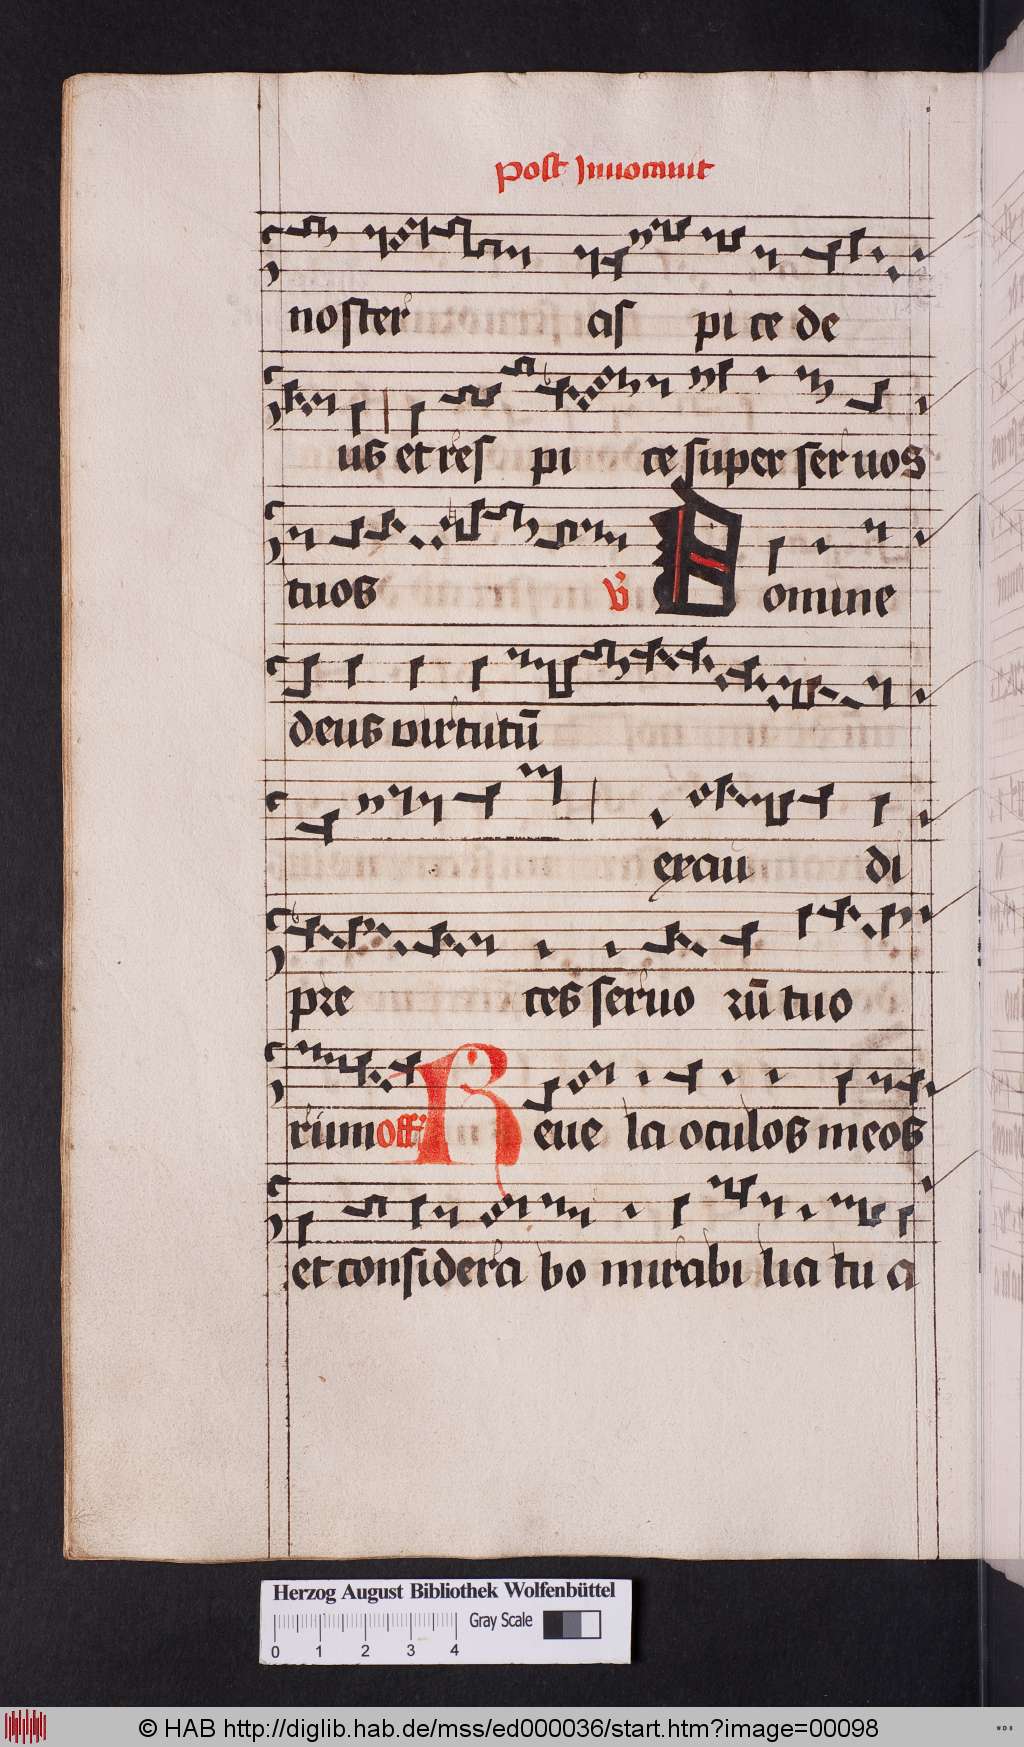 post Inuocauit
noster as pi ce de
us et res pi ce super ser uos
tuos V Domine
deus virtutū
exau di
pre ces seruo rū tuo
rum off Reue la oculos meos
et considera bo mirabi lia tu a
Herzog August Bibliothek Wolfenbüttel
Gray Scale
0 1 2 3 4
© HAB http://diglib.hab.de/mss/ed000036/start.htm?image=00098